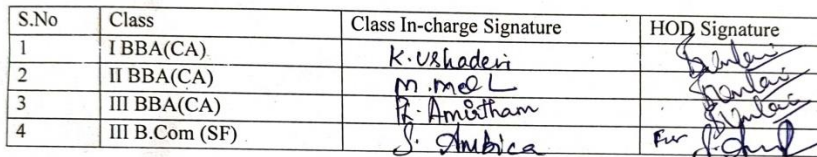 S.No Class Class In-charge Signature HOD Signature
1 I BBA(CA) K. Ushadevi
2 II BBA(CA)
3 III BBA(CA) Amirtham
4 III B.Com (SF) S. Ambica For